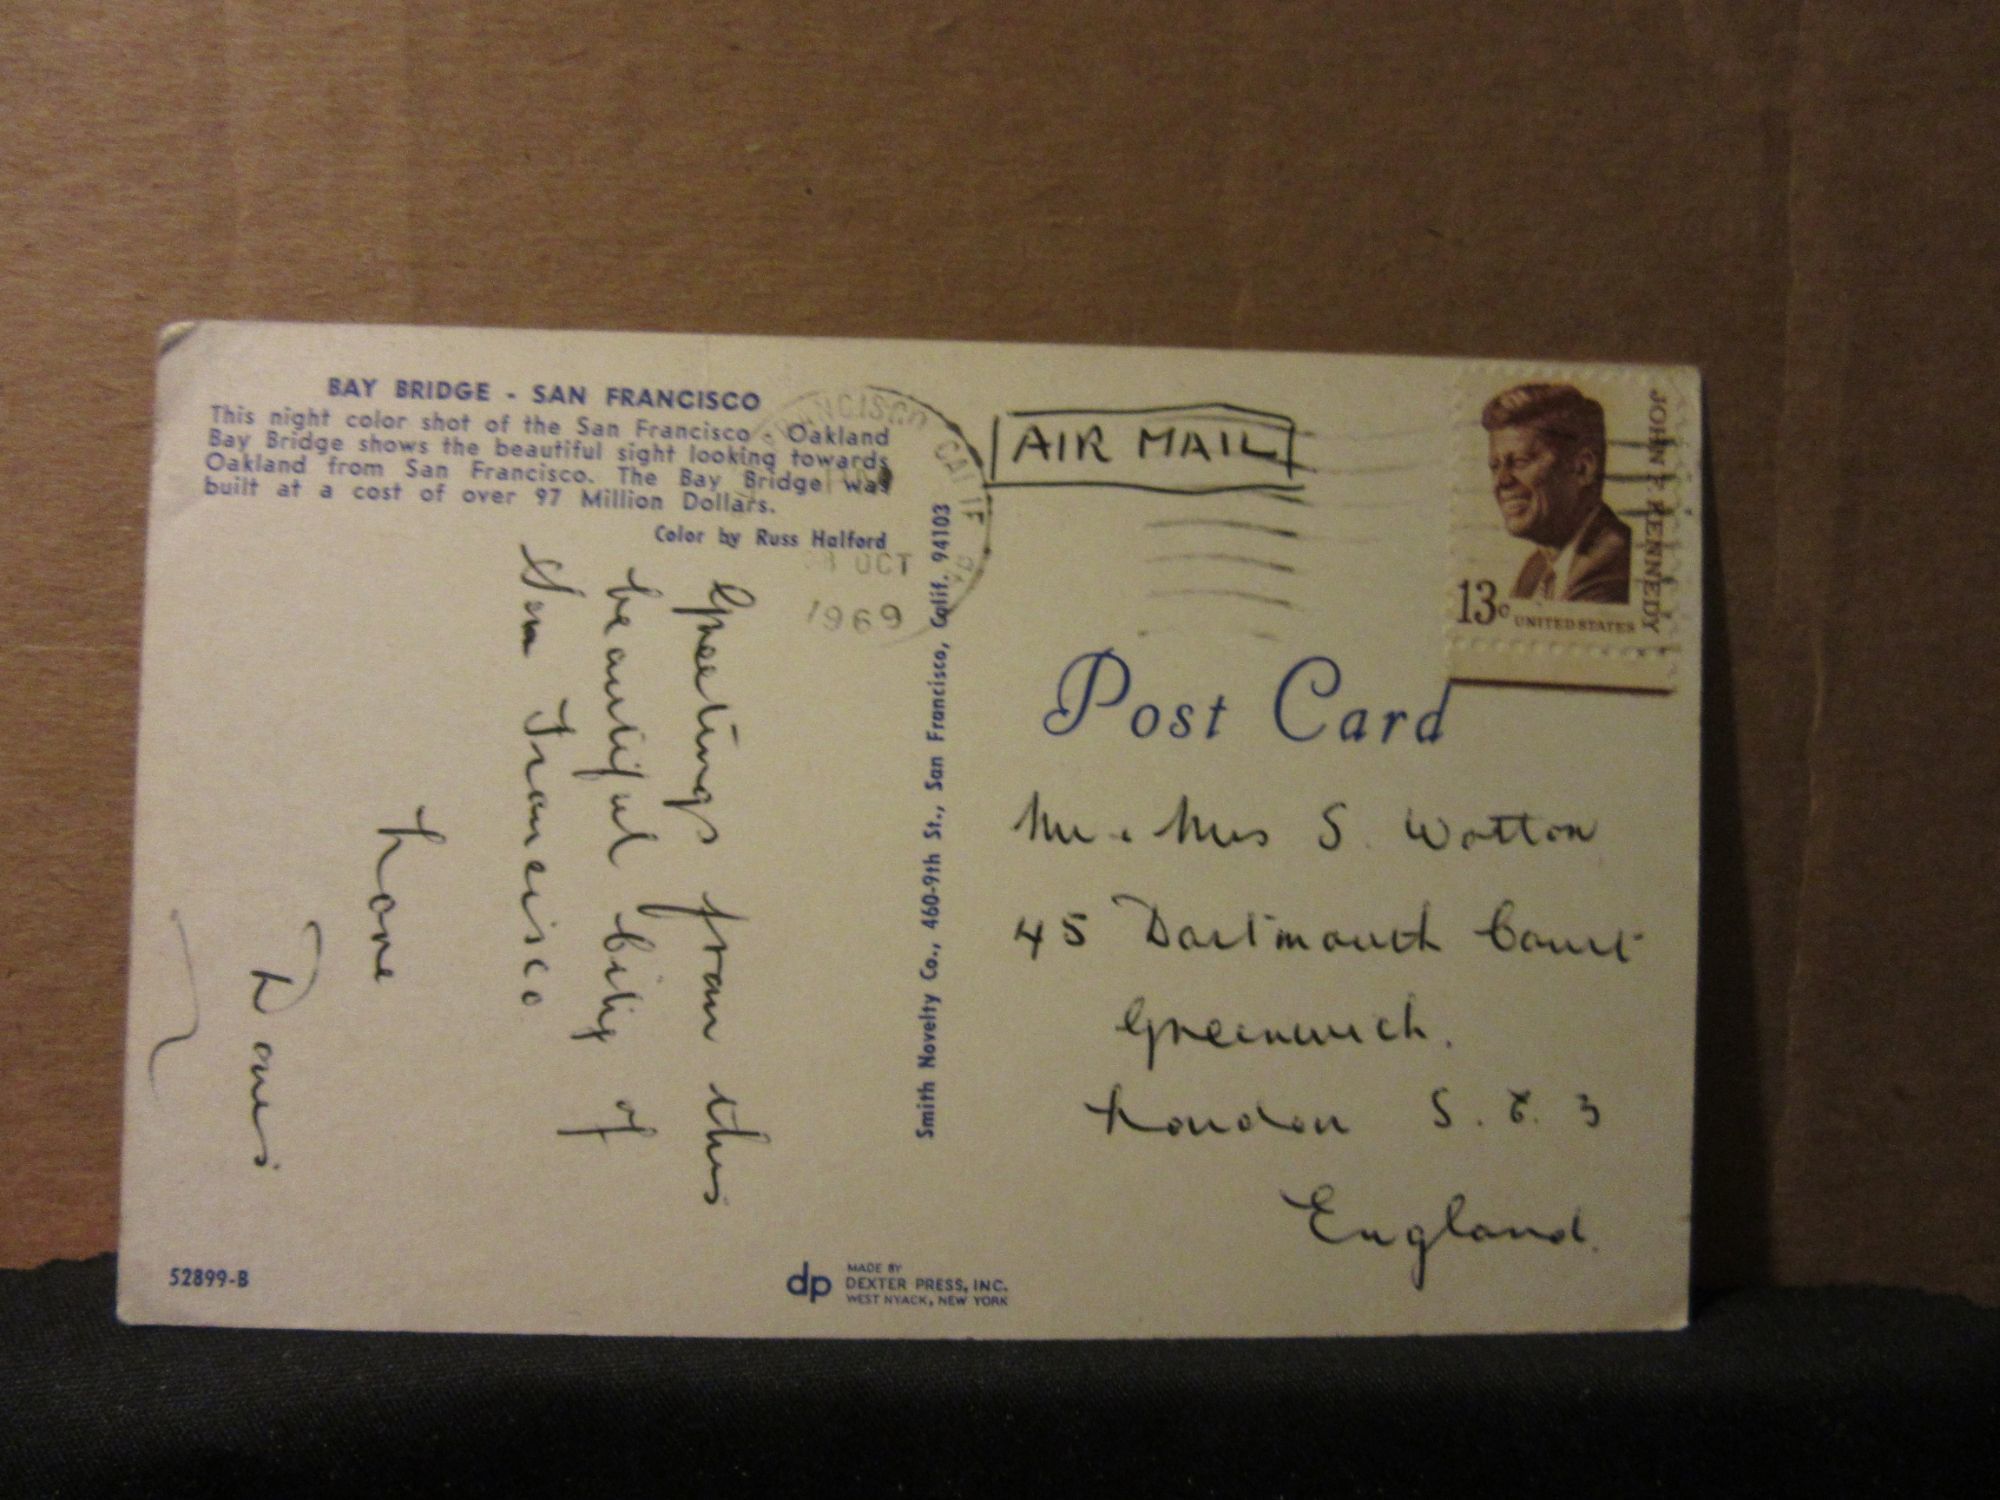 BAY BRIDGE - SAN FRANCISCO
This night color shot of the San Francisco - Oakland
Bay Bridge shows the beautiful sight looking towards
Oakland from San Francisco. The Bay Bridge was
built at a cost of over 97 Million Dollars.
Color by Russ Halford
FRANCISCO CALIF
OCT
1969
Greetings from this
beautiful city of
San Francisco
Love
Smith Novelty Co., 460-9th St., San Francisco, Calif. 94103
52899-B
dp
MADE BY
DEXTER PRESS, INC.
WEST NYACK, NEW YORK
AIR MAIL
JOHN F. KENNEDY
13c UNITED STATES
Post Card
Mr & Mrs S. Wotton
45 Dartmouth Court
Greenwich.
London S.E. 3
England.